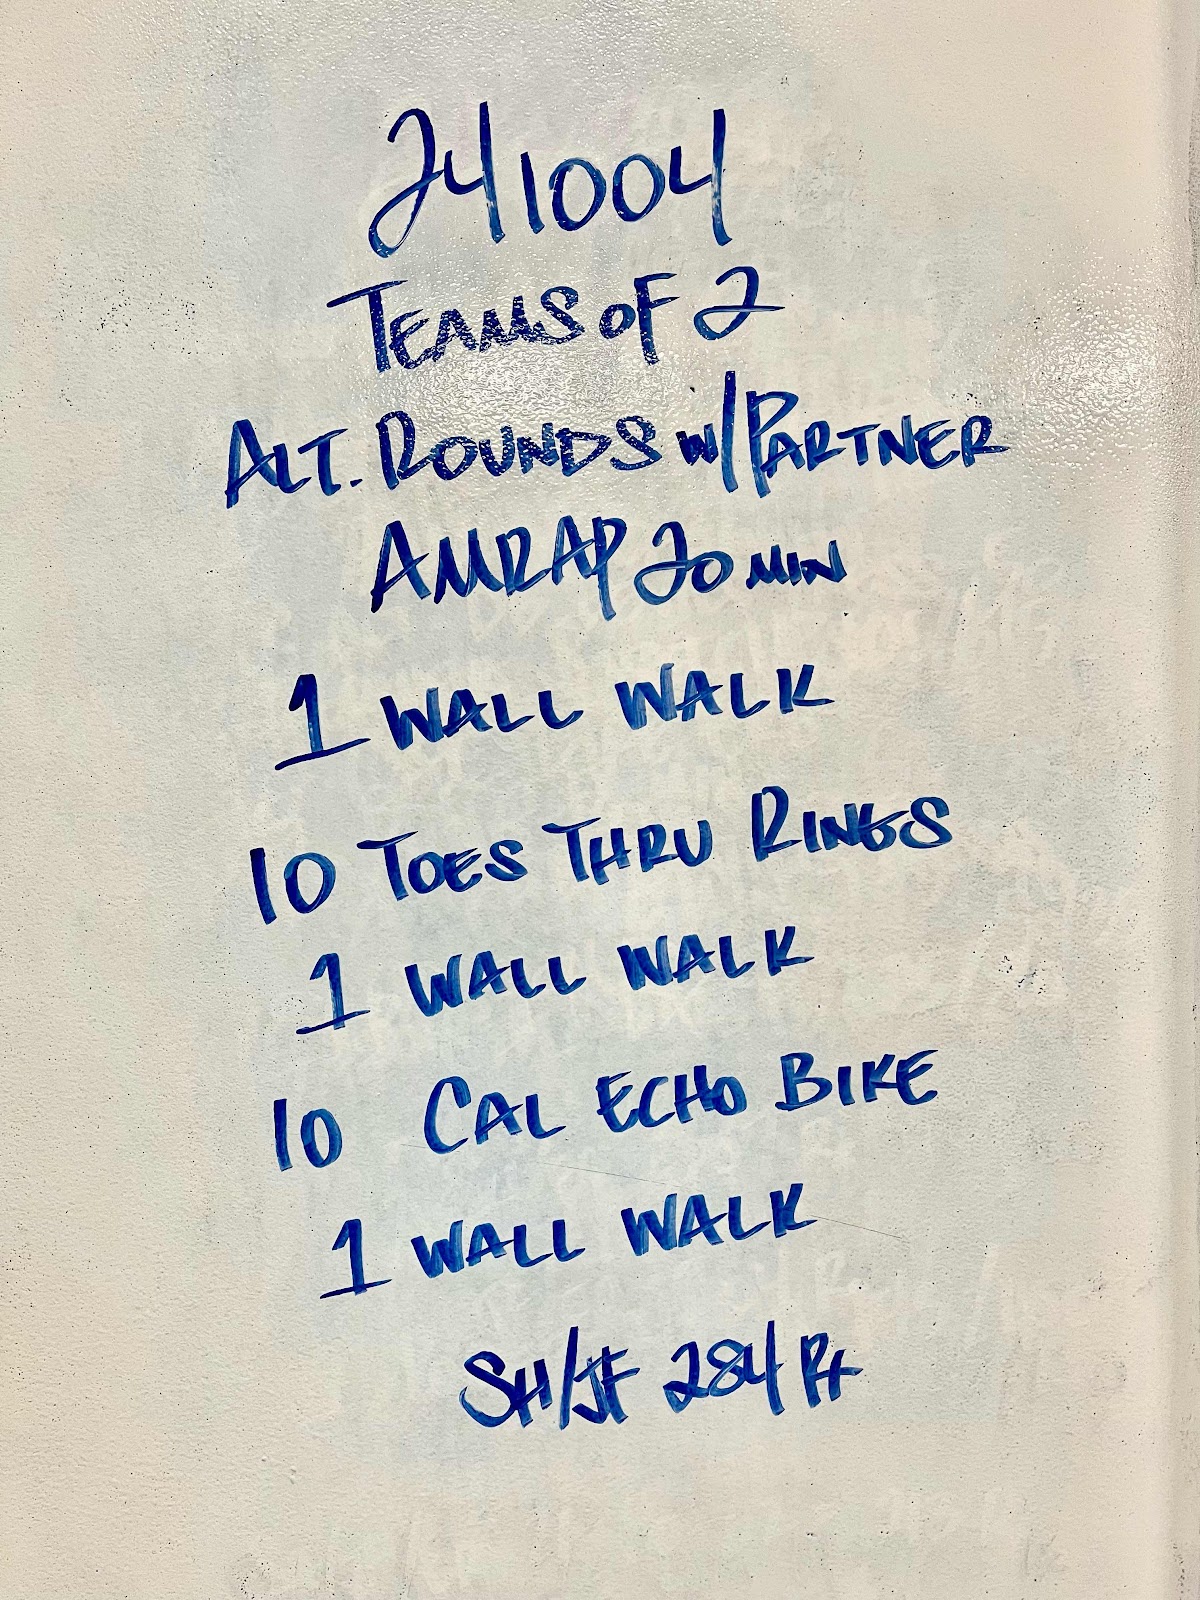 241004
TEAMS OF 2
ALT. ROUNDS W/PARTNER
AMRAP 20 MIN
1 WALL WALK
10 TOES THRU RINGS
1 WALL WALK
10 CAL ECHO BIKE
1 WALL WALK
SH/JF 284 Rx